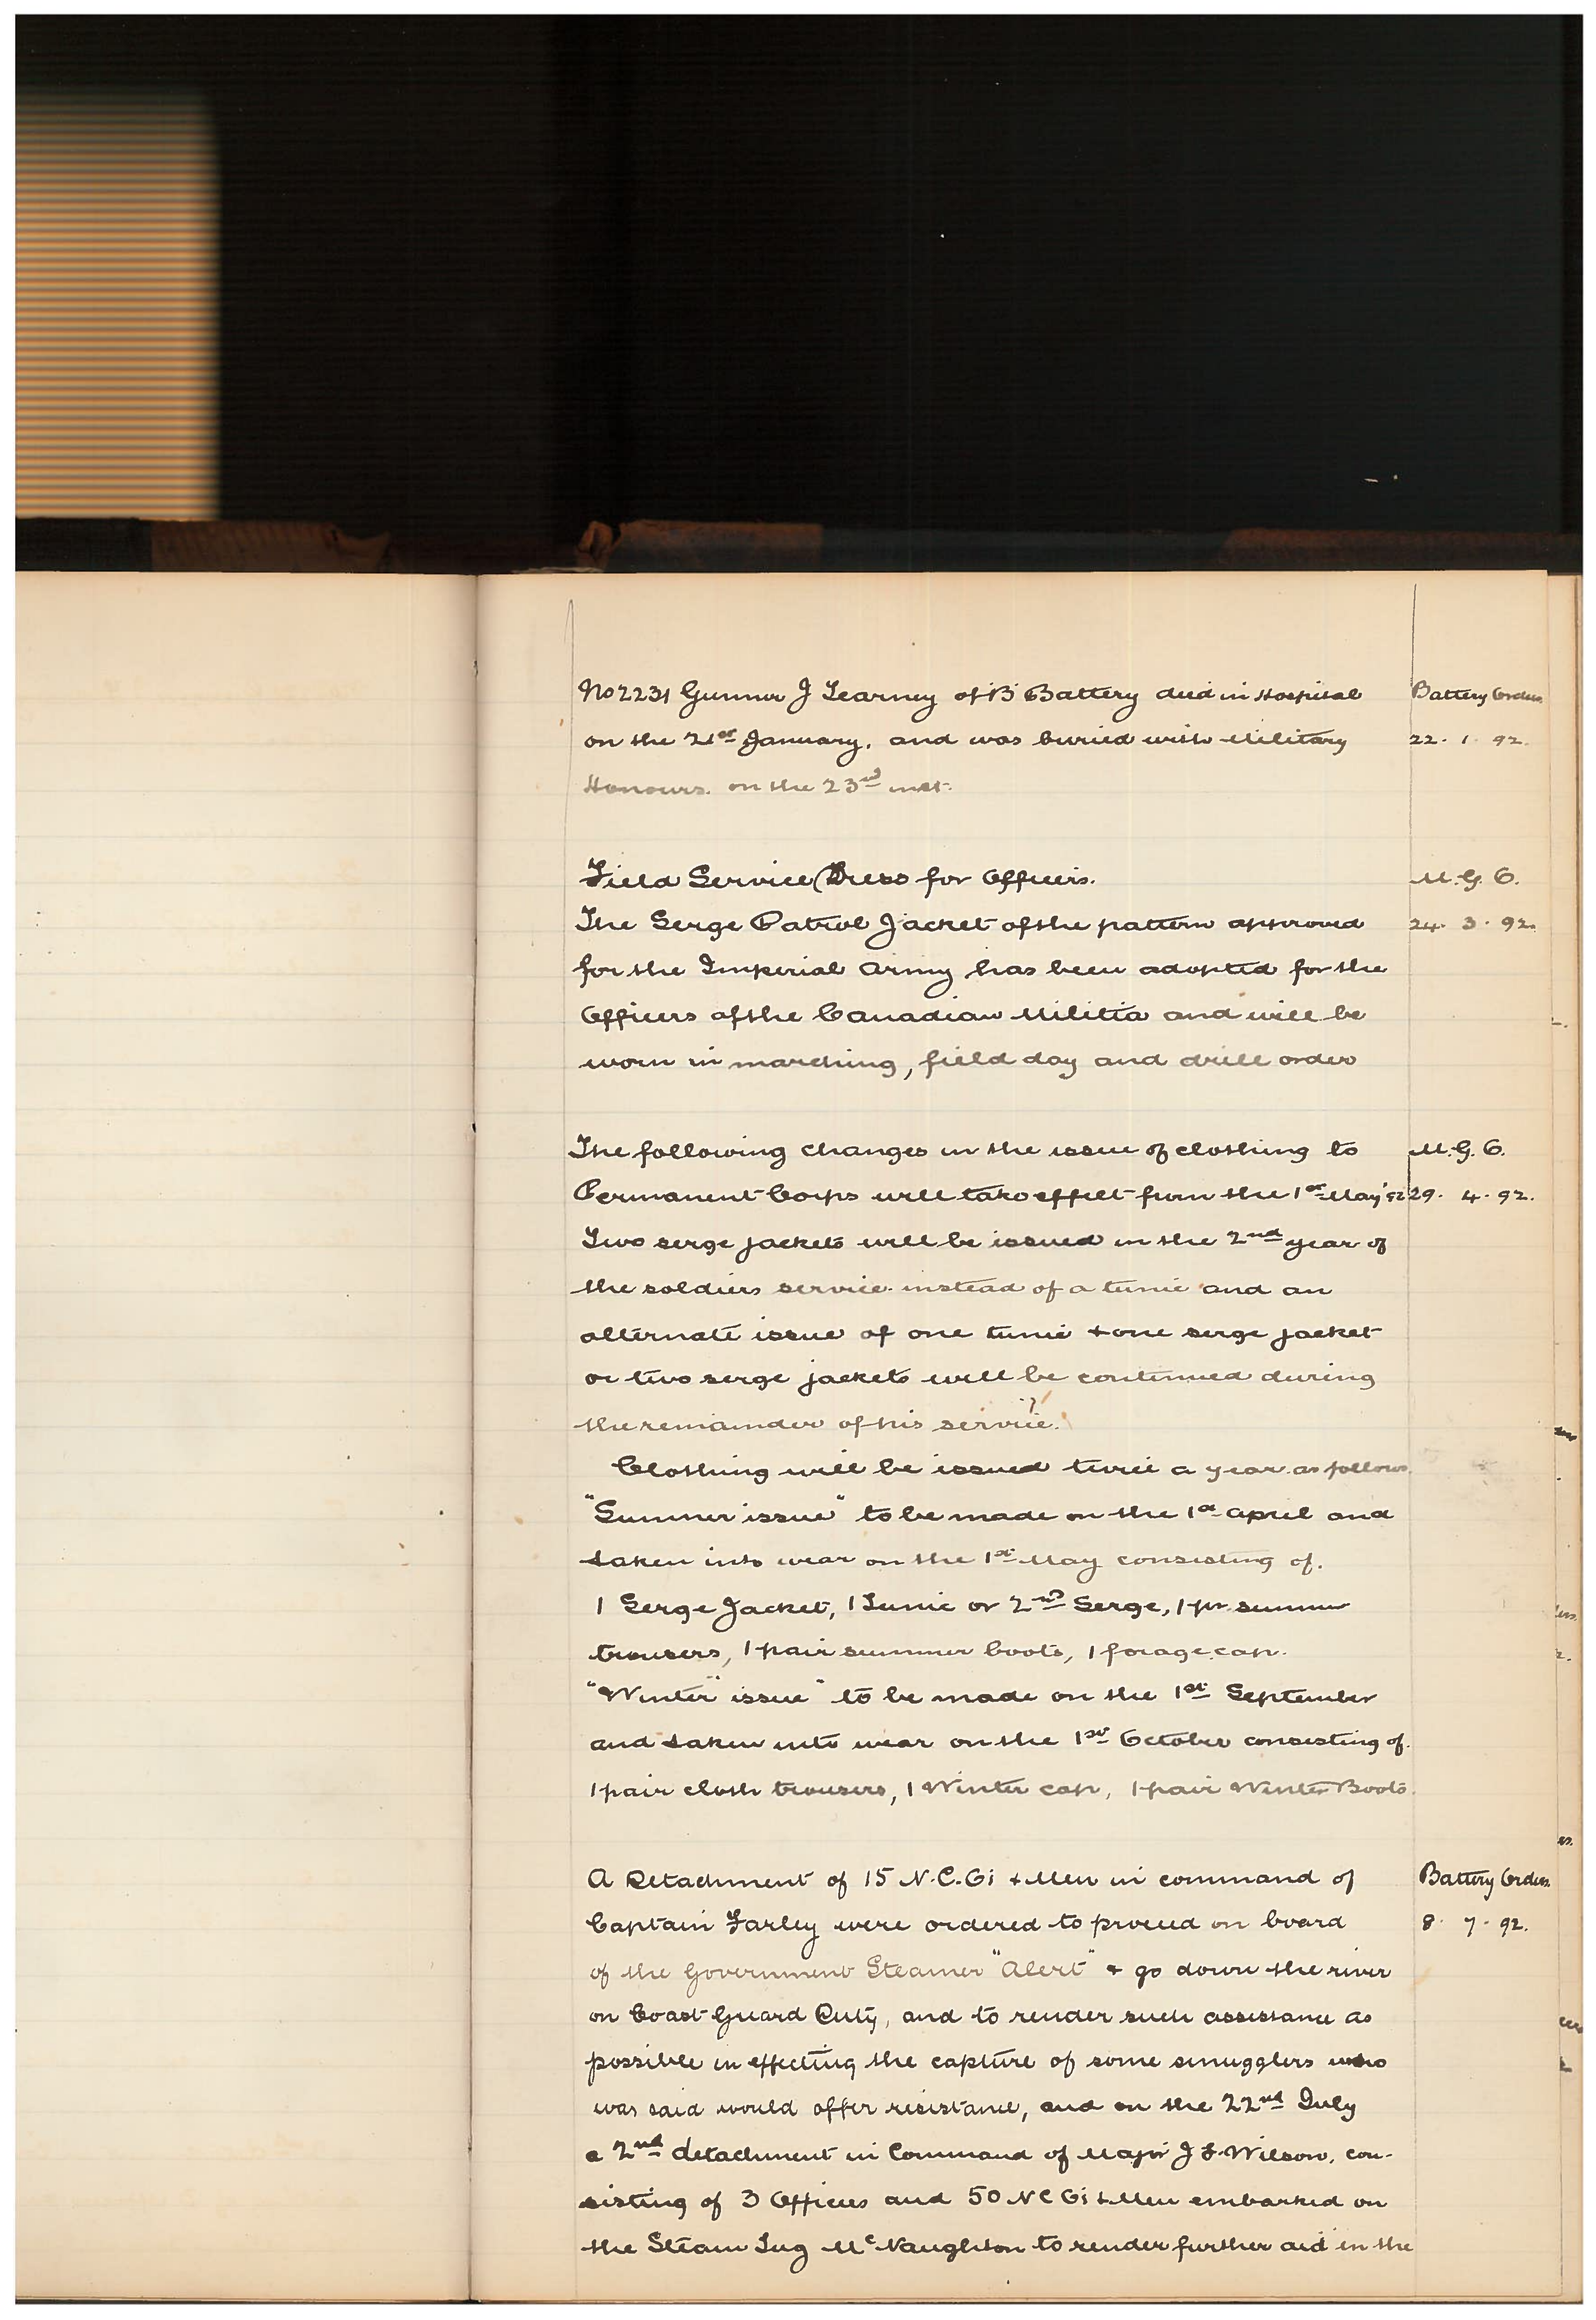 No 2231 Gunner J Learney of 'B' Battery died in Hospital Battery Orders
on the 21st January, and was buried with Military 22. 1. 92.
Honours. on the 23rd inst.
Field Service Dress for Officers. M.G.O.
The Serge Patrol Jacket of the pattern approved 24. 3. 92.
for the Imperial Army has been adopted for the
Officers of the Canadian Militia and will be
worn in marching, field day and drill order
The following changes in the issue of clothing to M.G.O.
Permanent Corps will take effect from the 1st May '92 29. 4. 92.
Two serge jackets will be issued in the 2nd year of
the soldiers service instead of a tunic and an
alternate issue of one tunic + one serge jacket
or two serge jackets will be continued during
the remainder of his service.
Clothing will be issued twice a year as follows
"Summer issue" to be made on the 1st April and
taken into wear on the 1st May consisting of.
1 Serge Jacket, 1 Tunic or 2nd Serge, 1 pr summer
trousers, 1 pair summer boots, 1 forage cap.
"Winter issue" to be made on the 1st September
and taken into wear on the 1st October consisting of.
1 pair cloth trousers, 1 Winter cap, 1 pair Winter Boots.
A Detachment of 15 N.C.Os + Men in command of Battery Orders
Captain Farley were ordered to proceed on board 8. 7. 92.
of the Government Steamer "Alert" + go down the river
on Coast Guard Duty, and to render such assistance as
possible in effecting the capture of some smugglers who
was said would offer resistance, and on the 22nd July
a 2nd detachment in Command of Major J F Wilson, con-
sisting of 3 Officers and 50 N C Os + Men embarked on
the Steam Tug McNaughton to render further aid in the